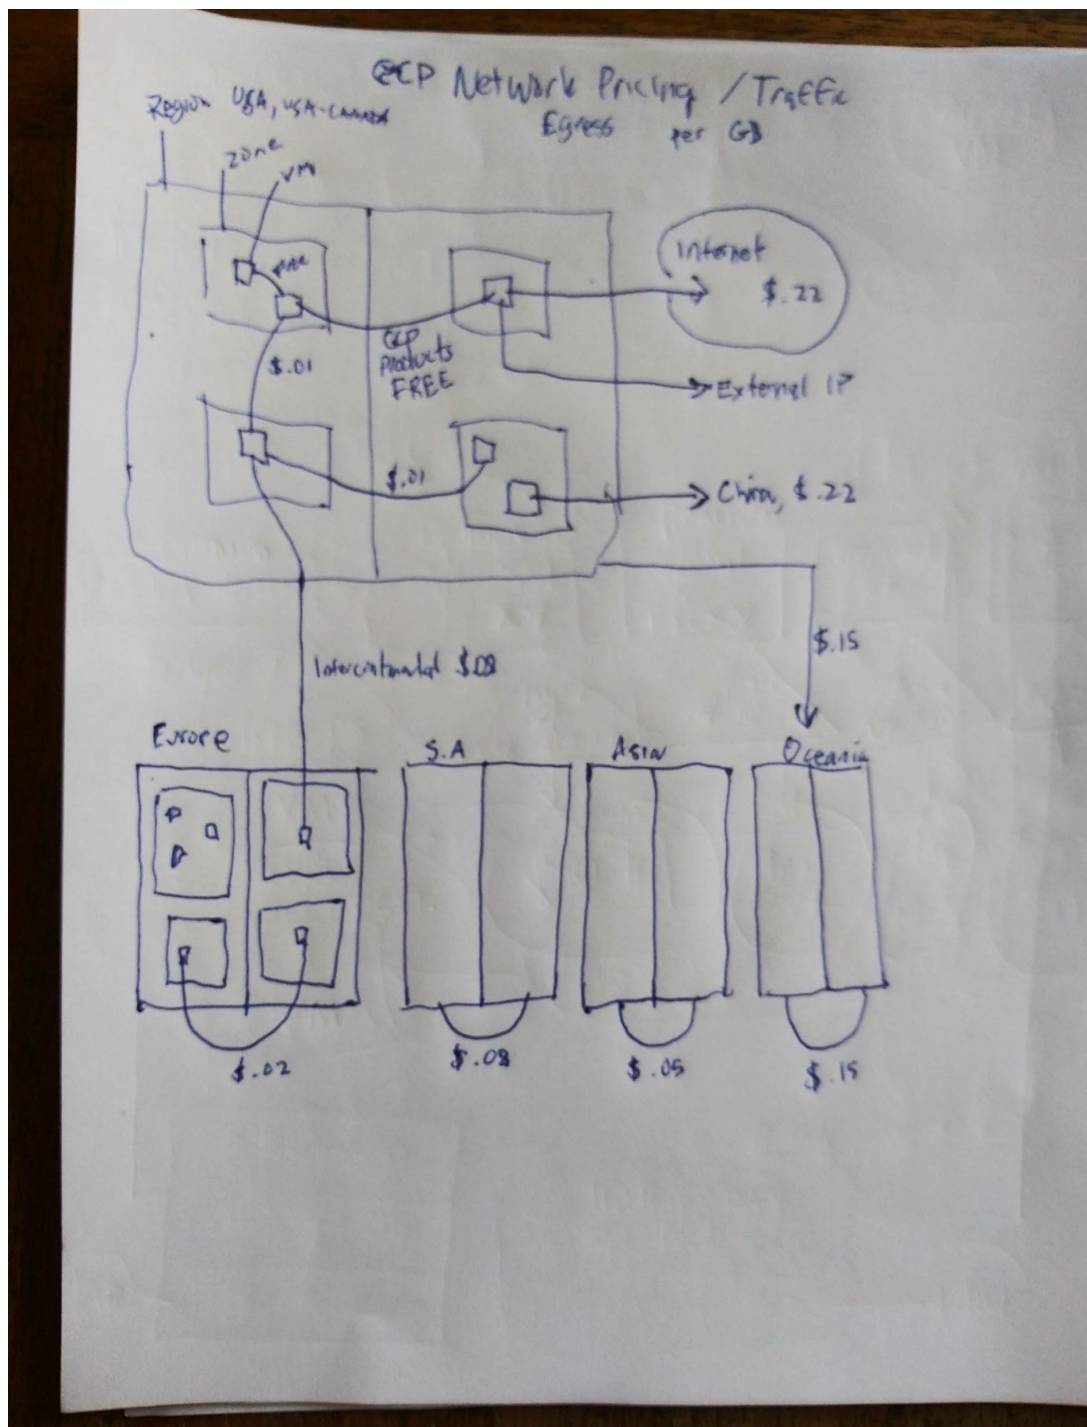 GCP Network Pricing / Traffic
Egress per GB
Region USA, USA-CANADA
zone
VM
free
Internet
$.22
GCP
Products
FREE
$.01
External IP
$.01
China, $.22
$.15
Intercontinental $.08
Europe
S.A
Asia
Oceania
$.02
$.08
$.05
$.15